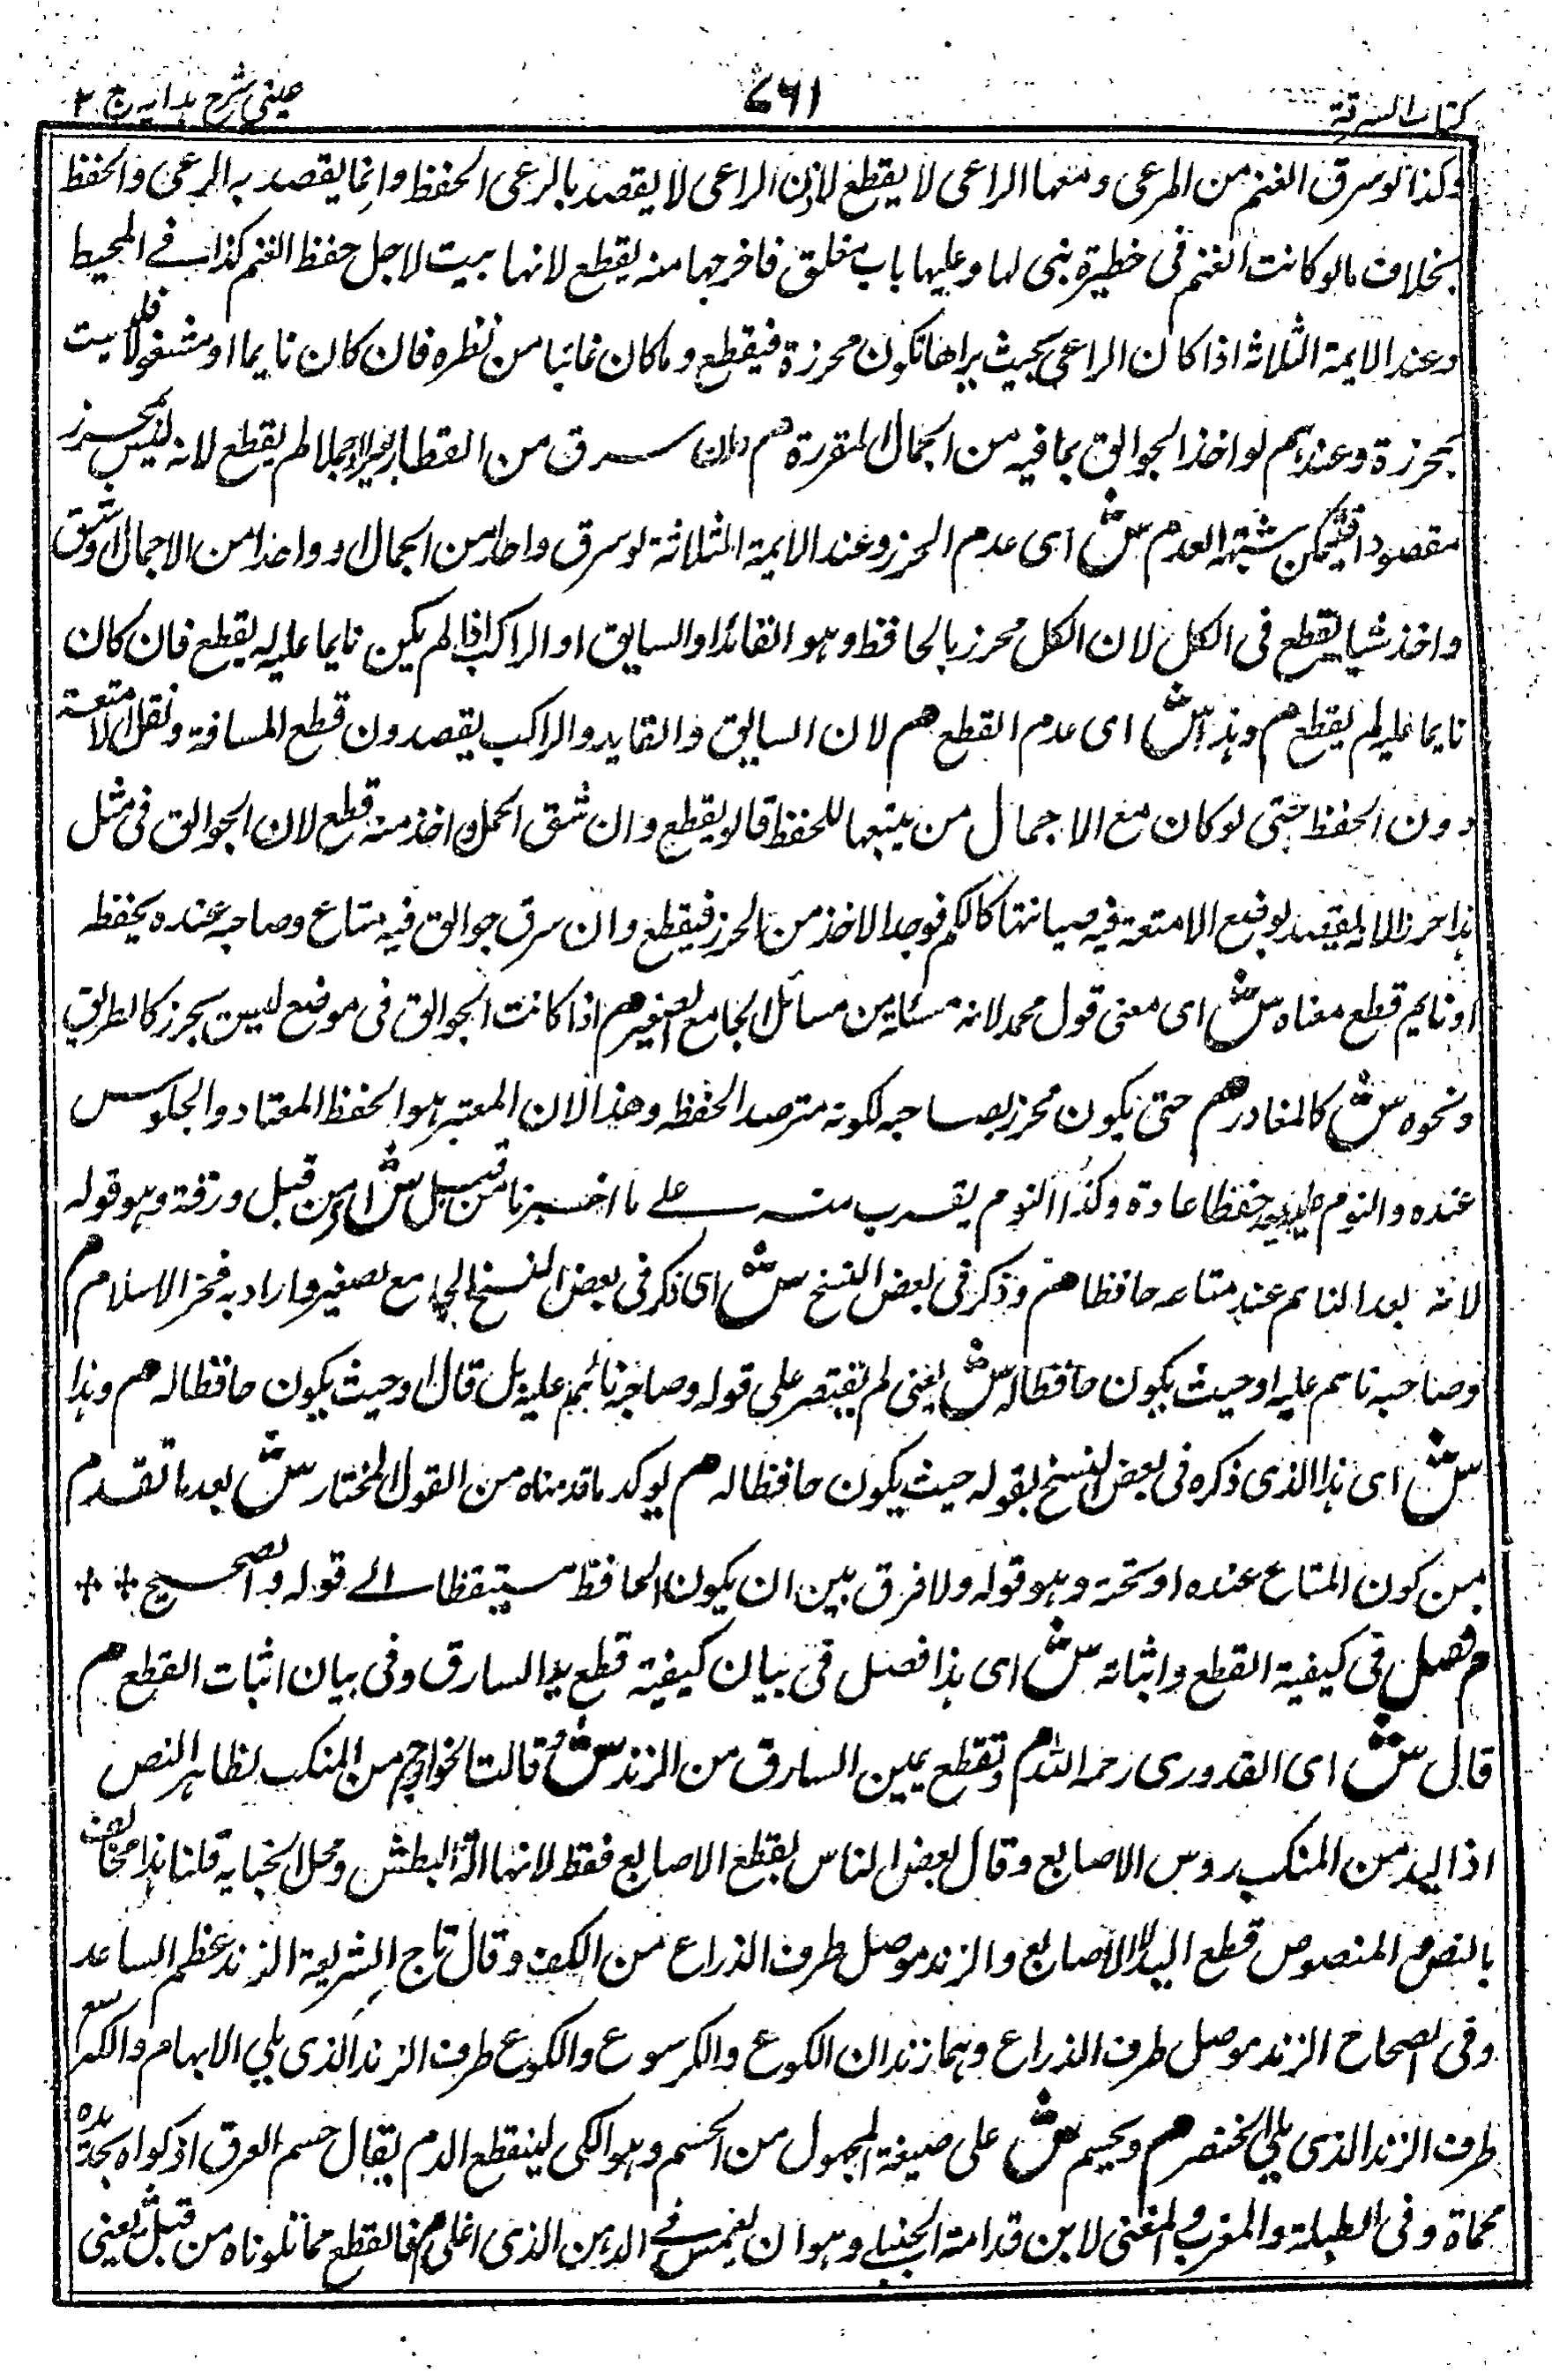 كتاب السرقة
٧٦١
عينى شرح هدايه ج ٢
وكذا لو سرق الغنم من المرعى ومعها الراعى لا يقطع لان الراعى لا يقصد بالرعى الحفظ وانما يقصد به الرعى والحفظ
بخلاف مالو كانت الغنم فى حظيرة بنى لها وعليها باب مغلق فاخرجها منه يقطع لانها بيت لاجل حفظ الغنم كذا فے المحيط
وعند الايمة الثلاثه اذا كان الراعى بحيث يراها تكون محرزة فيقطع وما كان غائبا من نظره فان كان نايما او مشغولا فليست
بمحرزة وعندهم لو اخذ الجوالق بما فيه من الجمال المقررة هم وان سرق من القطار بعيرا او حملا لم يقطع لانه ليس بمحرز
مقصودا فتمكن شبهة العدم ش اى عدم الحرز وعند الايمة الثلاثة لو سرق واحدا من الجمال او واحدا من الاحمال او شق
واخذ شيا يقطع فى الكل لان الكل محرز بالحافظ وهو القائد او السايق او الراكب اذا لم يكن نايما عليه يقطع فان كان
نايما عليه لم يقطع هم وهذا ش اى عدم القطع هم لان السايق والقايد والراكب يقصدون قطع المسافة ونقل الامتعة
دون الحفظ حتى لو كان مع الاحمال من يتبعها للحفظ قالو يقطع وان شق الحمل واخذ منه قطع لان الجوالق فى مثل
هذا حرز لانه يقصد بوضع الامتعة فيه صيانتها كالكم فوجد الاخذ من الحرز فيقطع وان سرق جوالق فيه متاع وصاحبه عنده يحفظه
او نايم قطع معناه ش اى معنى قول محمد لانه مسئلة من مسائل الجامع الصغير هم اذا كانت الجوالق فى موضع ليست بحرز كالطريق
ونحوه ش كالمغادر هم حتى يكون محرز بصاحبه لكونه مترصد الحفظه وهذا لان المعتبر هو الحفظ المعتاد والجلوس
عنده والنوم عليه يعد حفظا عادة وكذا النوم يقرب منه علے ما اخبرنا من قبل ش اى من قبل ورقة وهو قوله
لانه بعد النايم عند متاعه حافظا هم وذكر فى بعض النسخ ش اى ذكر فى بعض النسخ الجامع الصغير واراد به فخر الاسلام هم
وصاحبه نايم عليه او حيث يكون حافظا له ش يعنى لم يقتصر على قوله وصاحبه نائم عليه بل قال او حيث يكون حافظا له هم وهذا
ش اى هذا الذى ذكره فى بعض النسخ بقوله حيث يكون حافظا له هم يوكد ما قدمناه من القول المختار ش بعد ما تقدم
من كون المتاع عنده او تحته وهو قوله ولا فرق بين ان يكون الحافظ مستيقظا الے قوله والصحيح
م فصل فى كيفية القطع واثباته ش اى هذا فصل فى بيان كيفية قطع يد السارق وفى بيان اثبات القطع م
قال ش اى القدورى رحمه الله م وتقطع يمين السارق من الزند ش وقالت الخوارج من المنكب لظاهر النص
اذ اليد من المنكب روس الاصابع وقال بعض الناس بقطع الاصابع فقط لانها الة البطش ومحل الجناية قلنا هذا مخالف
بالنص م المنصوص قطع اليد لا الاصابع والزند موصل طرف الذراع من الكف وقال تاج الشريعة الزند عظم الساعد
وفى الصحاح الزند موصل طرف الذراع وهما زندان الكوع والكرسوع والكوع طرف الزند الذى يلى الابهام والكرسوع
طرف الزند الذى يلى الخنصر هم ويحسم ش على صيغة المجهول من الحسم وهو الكى لينقطع الدم يقال حسم العرق اذ كواه بحديده
محماة وفى الطبلة والمغرب والمغنى لابن قدامة الحنبلے وهو ان يغمس فے الدهن الذى اغلى هم فالقطع مما تلوناه من قبل ش يعنى